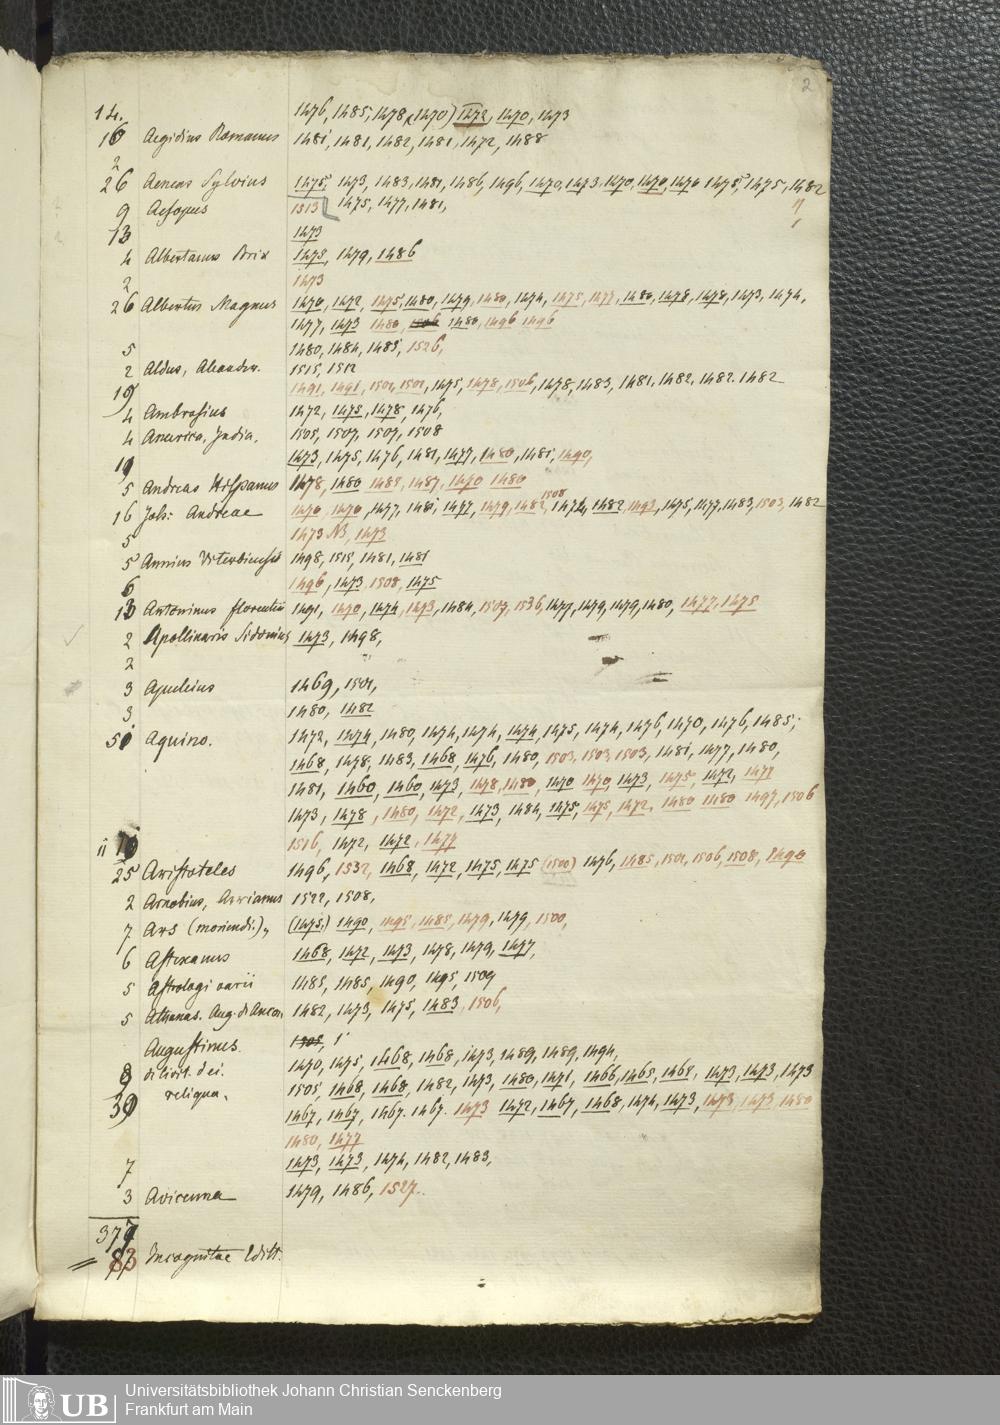 2
14. 1476, 1485, 1478, (1470) 1472, 1470, 1473
16 Aegidius Romanus 1481, 1481, 1482, 1481, 1472, 1488
2
26 Aeneas Sylvius 1475, 1473, 1483, 1481, 1486, 1496, 1470, 1473, 1470, 1470, 1470 1475, 1475, 1482
9 Aesopus 1513 1475, 1477, 1481,
13 1473
4 Albertanus Brix 1475, 1479, 1486
2 1473
26 Albertus Magnus 1470, 1472, 1475, 1480, 1479, 1480, 1474, 1475, 1477, 1480, 1478, 1478, 1473, 1474,
1477, 1473 1480, 1480, 1496 1496
5 1480, 1484, 1485, 1526,
2 Aldus, Alexander. 1515, 1512
19 1491, 1491, 1502, 1502, 1475, 1478, 1506, 1478, 1483, 1481, 1482, 1482. 1482
4 Ambrosius 1472, 1475, 1478, 1476,
4 America, India. 1505, 1507, 1507, 1508
1473, 1475, 1476, 1481, 1477, 1480, 1481, 1490,
5 Andreas Hispanus 1478, 1480 1485, 1487, 1470 1480
1508
16 Joh: Andreae 1470, 1470, 1477, 1481, 1477, 1479, 1482, 1474, 1482, 1493, 1475, 1477, 1483, 1503, 1482
5 1473 NB, 1473
5 Annius Viterbiensis 1498, 1515, 1481, 1481
6 1496, 1473 1508, 1475
13 Antoninus florentin 1491, 1470, 1474, 1473, 1484, 1507, 1536, 1477, 1479, 1479, 1480, 1477, 1475
2 Apollinaris Sidonius 1473, 1498,
2
3 Apuleius 1469, 1501,
3 1480, 1482
51 Aquino. 1472, 1474, 1480, 1474, 1474, 1474, 1475, 1474, 1476, 1470, 1476, 1485;
1468, 1478, 1483, 1468, 1476, 1480, 1503, 1503, 1503, 1481, 1477, 1480,
1481, 1460, 1460, 1473, 1478, 1480, 1470 1470, 1473, 1475, 1472, 1477
1473, 1478, 1480, 1472, 1473, 1484, 1475, 1475, 1472, 1480 1480 1497, 1506
11 1516, 1472, 1472, 1477
25 Aristoteles 1496, 1532, 1468, 1472, 1475, 1475 (1500) 1476, 1485, 1501, 1506, 1508, 1490
2 Arnobius, Arrianus 1522, 1508,
7 Ars (moriendi.), (1475.) 1490, 1495, 1485, 1479, 1479, 1500,
6 Astexanus 1468, 1472, 1473, 1478, 1479, 1477,
5 Astrologi varii 1485, 1485, 1490, 1495, 1509
5 Athanas. Aug. di Ancon, 1482, 1473, 1475, 1483, 1506,
Augustinus. 1505, 1
8 di Civit. dei. 1470, 1475, 1468, 1468, 1473, 1489, 1489, 1494,
reliqua. 1505, 1468, 1468, 1482, 1473, 1480, 1471, 1466, 1465, 1468, 1473, 1473, 1473
39 1467, 1467, 1467. 1467. 1473 1472, 1467, 1468, 1474, 1473, 1473, 1473, 1480
1480, 1477
7 1473, 1473, 1474, 1482, 1483,
3 Avicenna 1479, 1486, 1527.
377
83 Incognitae Editt.
UB Universitätsbibliothek Johann Christian Senckenberg
Frankfurt am Main